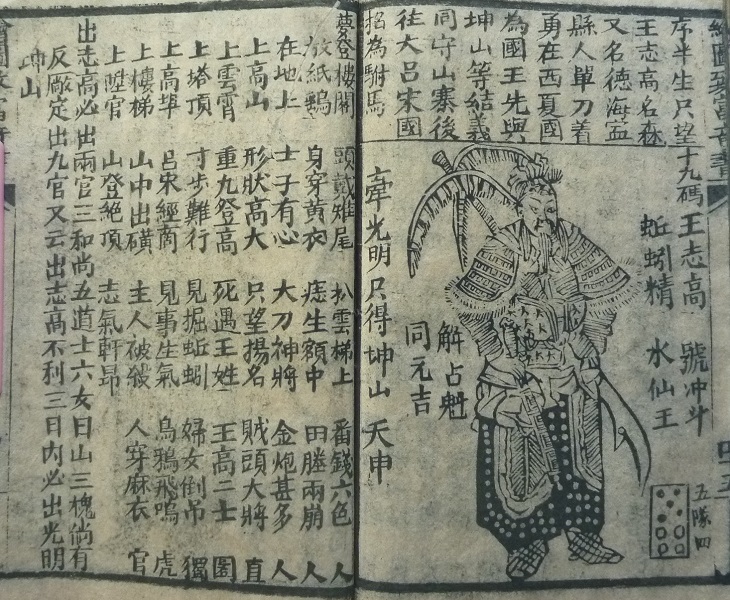 繪圖致富奇書
序半生只望十九碼
王志高名森
又名德海孟
縣人單刀着
勇在西夏國
為國王先與
坤山等結義
同守山寨後
往大呂宋國
招為駙馬
王志高 號冲斗
蚯蚓精 水仙王
解占魁
同元吉
牽光明只得坤山 天申
五隊四
夢登樓閣 頭戴雉尾 扒雲梯上 番錢六色 人
放紙鷂 身穿黃衣 痣生額中 田塍兩崩 人
在地上 士子有心 大刀神將 金炮甚多 人
上高山 形狀高大 只望揚名 賊頭大將 直
上雲霄 重九登高 死遇王姓 王高二士 圈
上塔頂 寸步難行 見掘蚯蚓 婦女倒吊 獨
上高埠 呂宋經商 見事生氣 烏鴉飛鳴 虎
上樓梯 山中出磺 主人被殺 人穿麻衣 官
上陞官 山登絕頂 志氣軒昂
出志高必出兩官三和尚五道士六女曰山三槐倘有
反厰定出九官又云出志高不利三日內必出光明
坤山